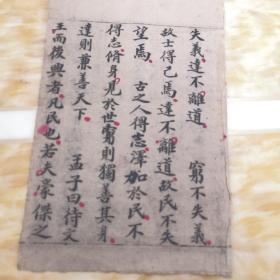 失義達不離道　窮不失義
故士得己焉達不離道故民不失
望焉　古之人得志澤加於民不
得志脩身見於世窮則獨善其身
達則兼善天下　孟子曰待文
王而後興者凡民也若夫豪傑之